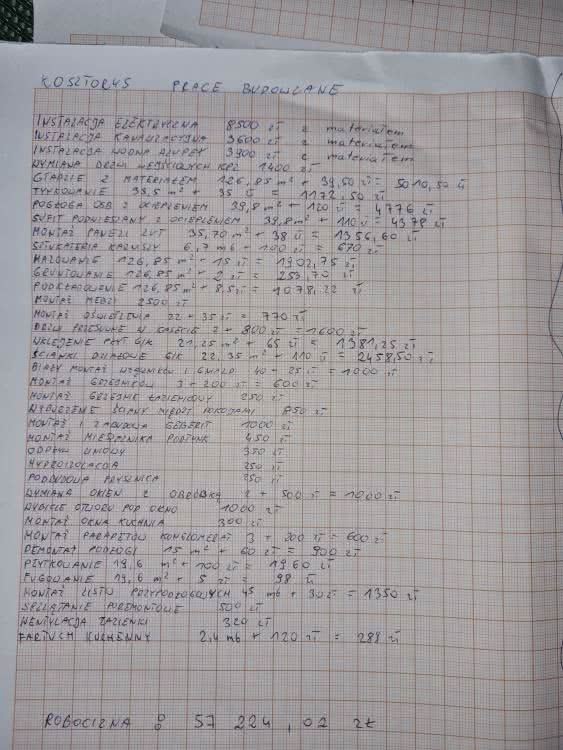 KOSZTORYS PRACE BUDOWLANE
INSTALACJA ELEKTRYCZNA 8500 zł z materiałem
INSTALACJA KANALIZACYJNA 3600 zł z materiałem
INSTALACJA WODNA 3900 z materiałem
WYMIANA DRZWI WEJŚCIOWYCH KPL 1400 zł
GŁADZIE Z MATERIAŁEM 126,85 m² + 39,50 zł = 5010,50 zł
TYNKOWANIE 33,5 m² + 35 zł = 1172,50 zł
PODŁOGA OSB Z OCIEPLENIEM 39,8 m² + 120 zł = 4776 zł
SUFIT PODWIESZANY Z OCIEPLENIEM 39,8 m² + 110 zł = 4378 zł
MONTAŻ PANELI LVT 35,70 m² + 38 zł = 1356,60 zł
SZTUKATERIA KARNISZY 6,7 mb + 100 zł = 670 zł
MALOWANIE 126,85 m² + 15 zł = 1902,75 zł
GRUNTOWANIE 126,85 m² + 2 zł = 253,70 zł
PODKŁADOWANIE 126,85 m² + 8,5 zł = 1078,22 zł
MONTAŻ MEBLI 2500 zł
MONTAŻ OŚWIETLENIA 22 + 35 zł = 770 zł
DRZWI PRZESUWNE W KASECIE 2 + 800 zł = 1600 zł
WKLEJENIE PŁYT G/K 21,25 m² + 65 zł = 1381,25 zł
ŚCIANKI DZIAŁOWE G/K 22,35 m² + 110 zł = 2458,50 zł
BIAŁY MONTAŻ WŁĄCZNIKÓW I GNIAZD 40 + 25 zł = 1000 zł
MONTAŻ GRZEJNIKÓW 3 + 200 zł = 600 zł
MONTAŻ GRZEJNIK ŁAZIENKOWY 250 zł
WYBURZENIE ŚCIANY MIĘDZY POKOJAMI 850 zł
MONTAŻ I ZABUDOWA GEBERIT 1000 zł
MONTAŻ MIESZALNIKA PODTYNK 450 zł
ODPŁYW LINIOWY 350 zł
HYDROIZOLACJA 250 zł
PODBUDOWA PRYSZNICA 250 zł
WYMIANA OKIEN Z OBRÓBKĄ 2 + 500 zł = 1000 zł
WYBICIE OTWORU POD OKNO 1000 zł
MONTAŻ OKNA KUCHNIA 300 zł
MONTAŻ PARAPETÓW KONGLOMERAT 3 + 200 zł = 600 zł
DEMONTAŻ PODŁOGI 15 m² + 60 zł = 900 zł
PŁYTKOWANIE 19,6 m² + 100 zł = 1960 zł
FUGOWANIE 19,6 m² + 5 zł = 98 zł
MONTAŻ LISTW PRZYPODŁOGOWYCH 45 mb + 30 zł = 1350 zł
SPRZĄTANIE POREMONTOWE 500 zł
WENTYLACJA ŁAZIENKI 320 zł
FARTUCH KUCHENNY 2,4 mb + 120 zł = 288 zł
ROBOCIZNA : 57 224,02 zł